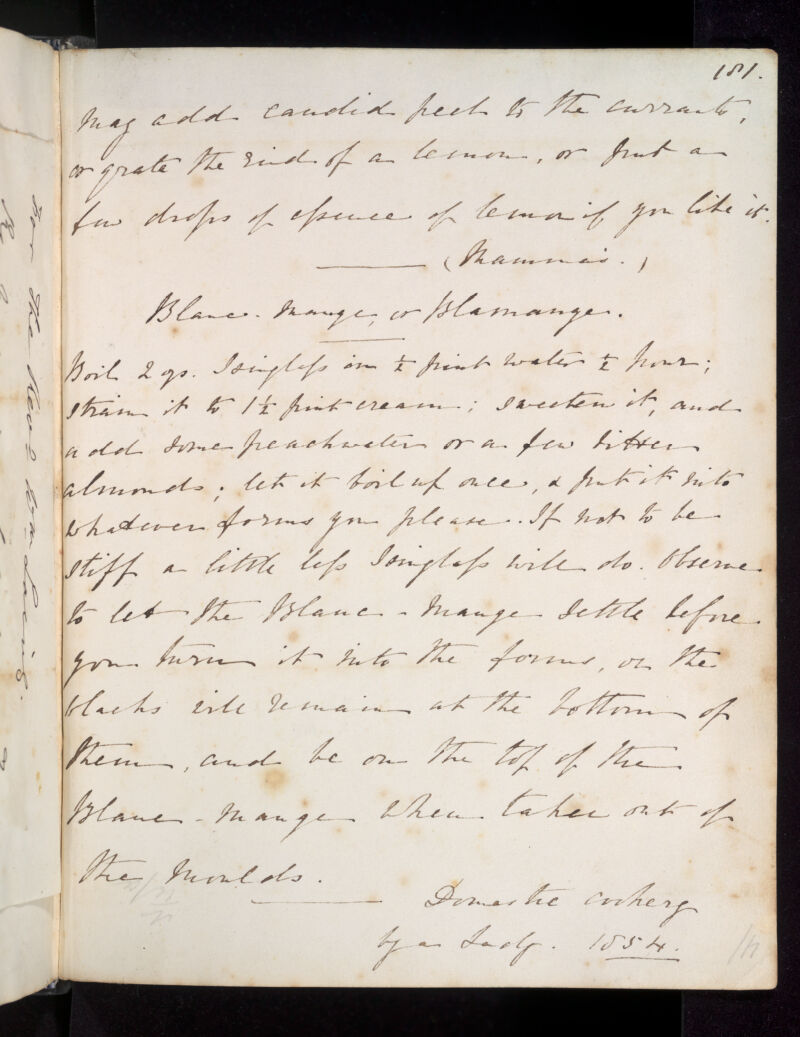 181.
May add candid peel to the currants,
or grate the rind of a lemon, or put a
few drops of essence of lemon if you like it.
(Mamma's.)
Blanc-Mange, or Blamange.
Boil 2 oz. Isinglass in ½ pint water ½ hour;
strain it to 1½ pint cream; sweeten it, and
add some peachwater or a few bitter
almonds; let it boil up once, & put it into
whatever forms you please. If not to be
stiff a little less Isinglass will do. Observe
to let the Blanc-Mange settle before
you turn it into the forms, or the
blacks will remain at the bottom of
them, and be on the top of the
Blanc-Mange when taken out of
the Moulds.
Domestic cookery
by a Lady. 1854.